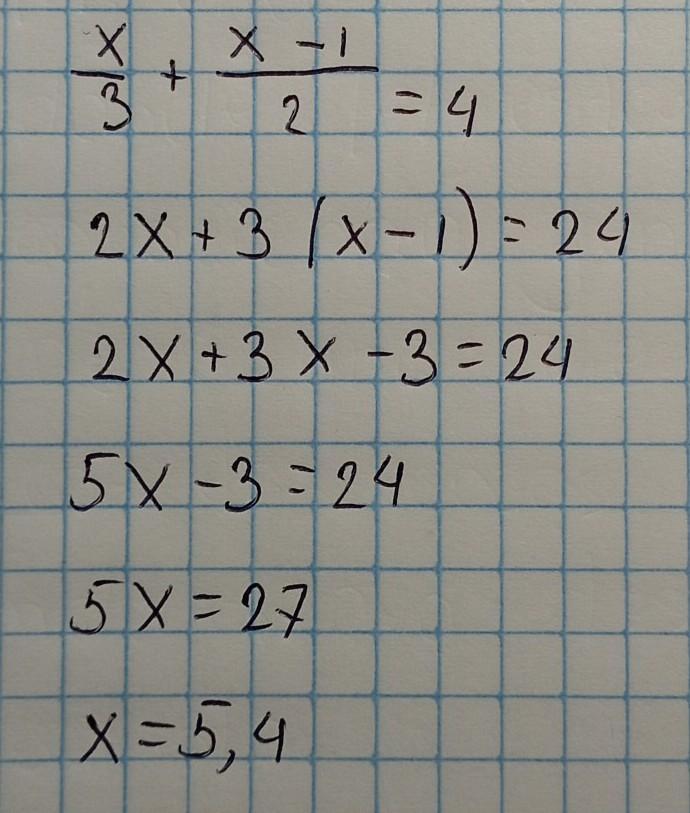 x/3 + (x - 1)/2 = 4
2x + 3 (x - 1) = 24
2x + 3x - 3 = 24
5x - 3 = 24
5x = 27
x = 5,4